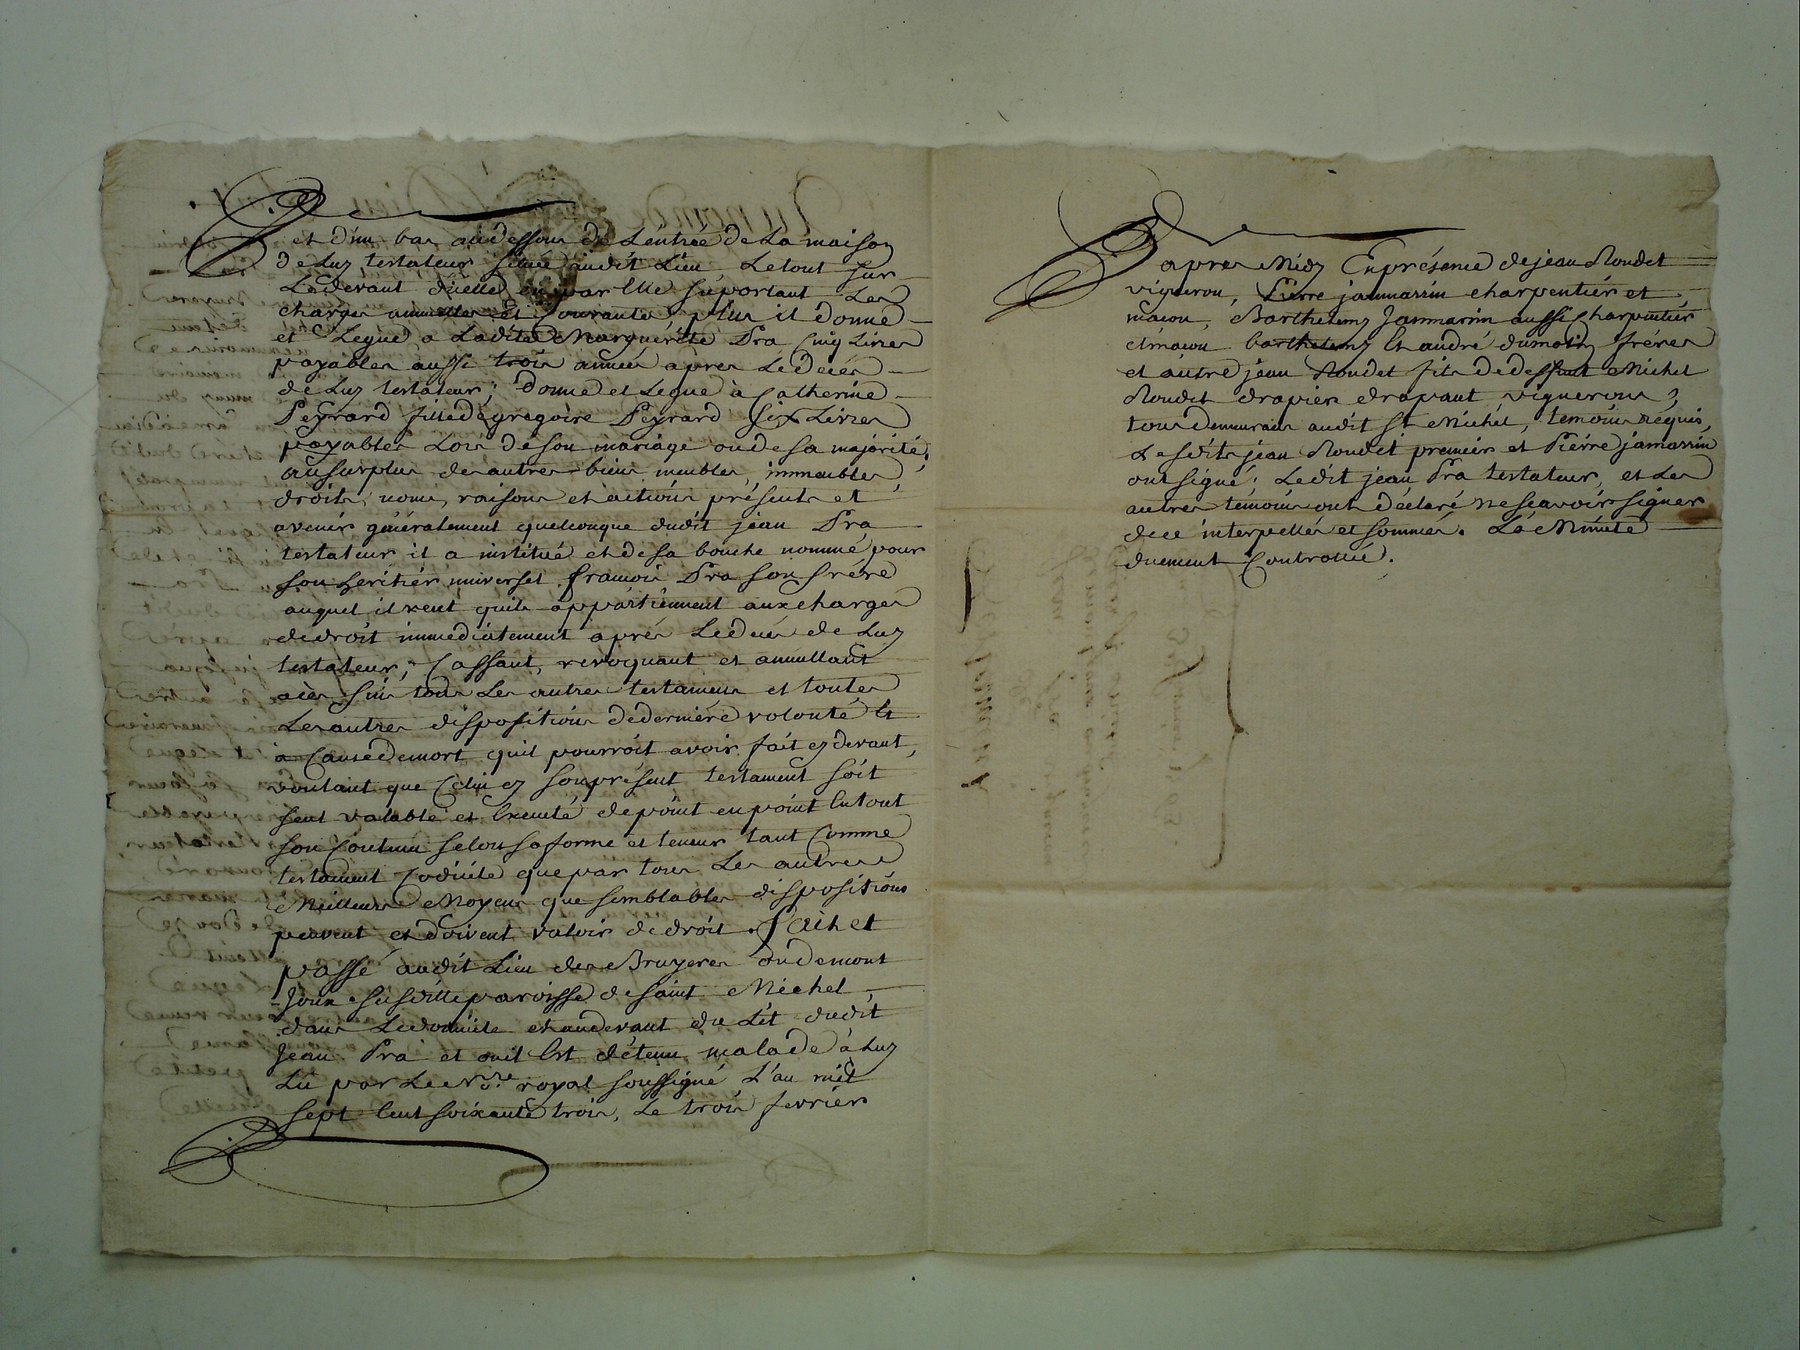 et d'un bas audessous de L'entrée de La maison
de Luy testateur située audit Lieu, Le tout sur
Ledevant d'icelle en par Elle suportant Les
charges annuelles Et Courantes, plus il donne
et Legue a Ladite Marguérite Pra Cinq Livres
payables aussi trois années après Ledécés
de Luy testateur; donne et Legue à Catherine
Peyrard fille de grégoire Peyrard Six Livres
payables Lors de son mariage ou de sa majorité,
ausurplus des autres biens meubles, immeubles,
droits, noms, raisons et actions présents et
avenir généralement quelconque dudit jean Pra
testateur il a institué et de sa bouche nommé pour
son héritiér universel françois Pra son frére
auquel il veut quils appartiennent aux charges
de droit immediatement après Ledécés de Luy
testateur; Cassant, revoquant et annullant
à ces fins tous Les autres testaments et toutes
Les autres dispositions de derniére volonté Et
à Cause de mort quil pourroit avoir fait cy devant,
voulant que Celui cy son présent testament soit
seul valable et Executé de point en point En tout
son Contenu selon sa forme et teneur tant Comme
testament Codicile que par tous Les autres
Meilleurs Moyens que semblables dispositions
peuvent et doivent valoir de droit. fait et
passé audit Lieu des Bruyeres ou demont
-Joux susditte paroisse de saint Michel
dans Ledomicile et audevant du Lit dudit
Jean Pra et ou il Est détenu malade à Luy
Lû par Le nre. royal soussigné L'an mil
sept Cent soixante trois, Le trois fevrier
apres Midy En présence de jean Noudet
vigneron, Pierre jammarin charpentier et
maçon, Barthelemy Jammarin aussi charpentier
et maçon barthelemy Et andré dumolin fréres
et autre jean Noudet fils de deffunt Michel
Noudet drapier drapant vignerons,
tous demeurans audit St Michel, temoins réquis,
Lesdits jean Noudet premier et Pierre jamarrin
ont signé; Ledit jean Pra testateur, et Les
autres témoins ont déclaré ne sçavoir signer
de ce interpellés et sommés. La Minute
duement Controllée.